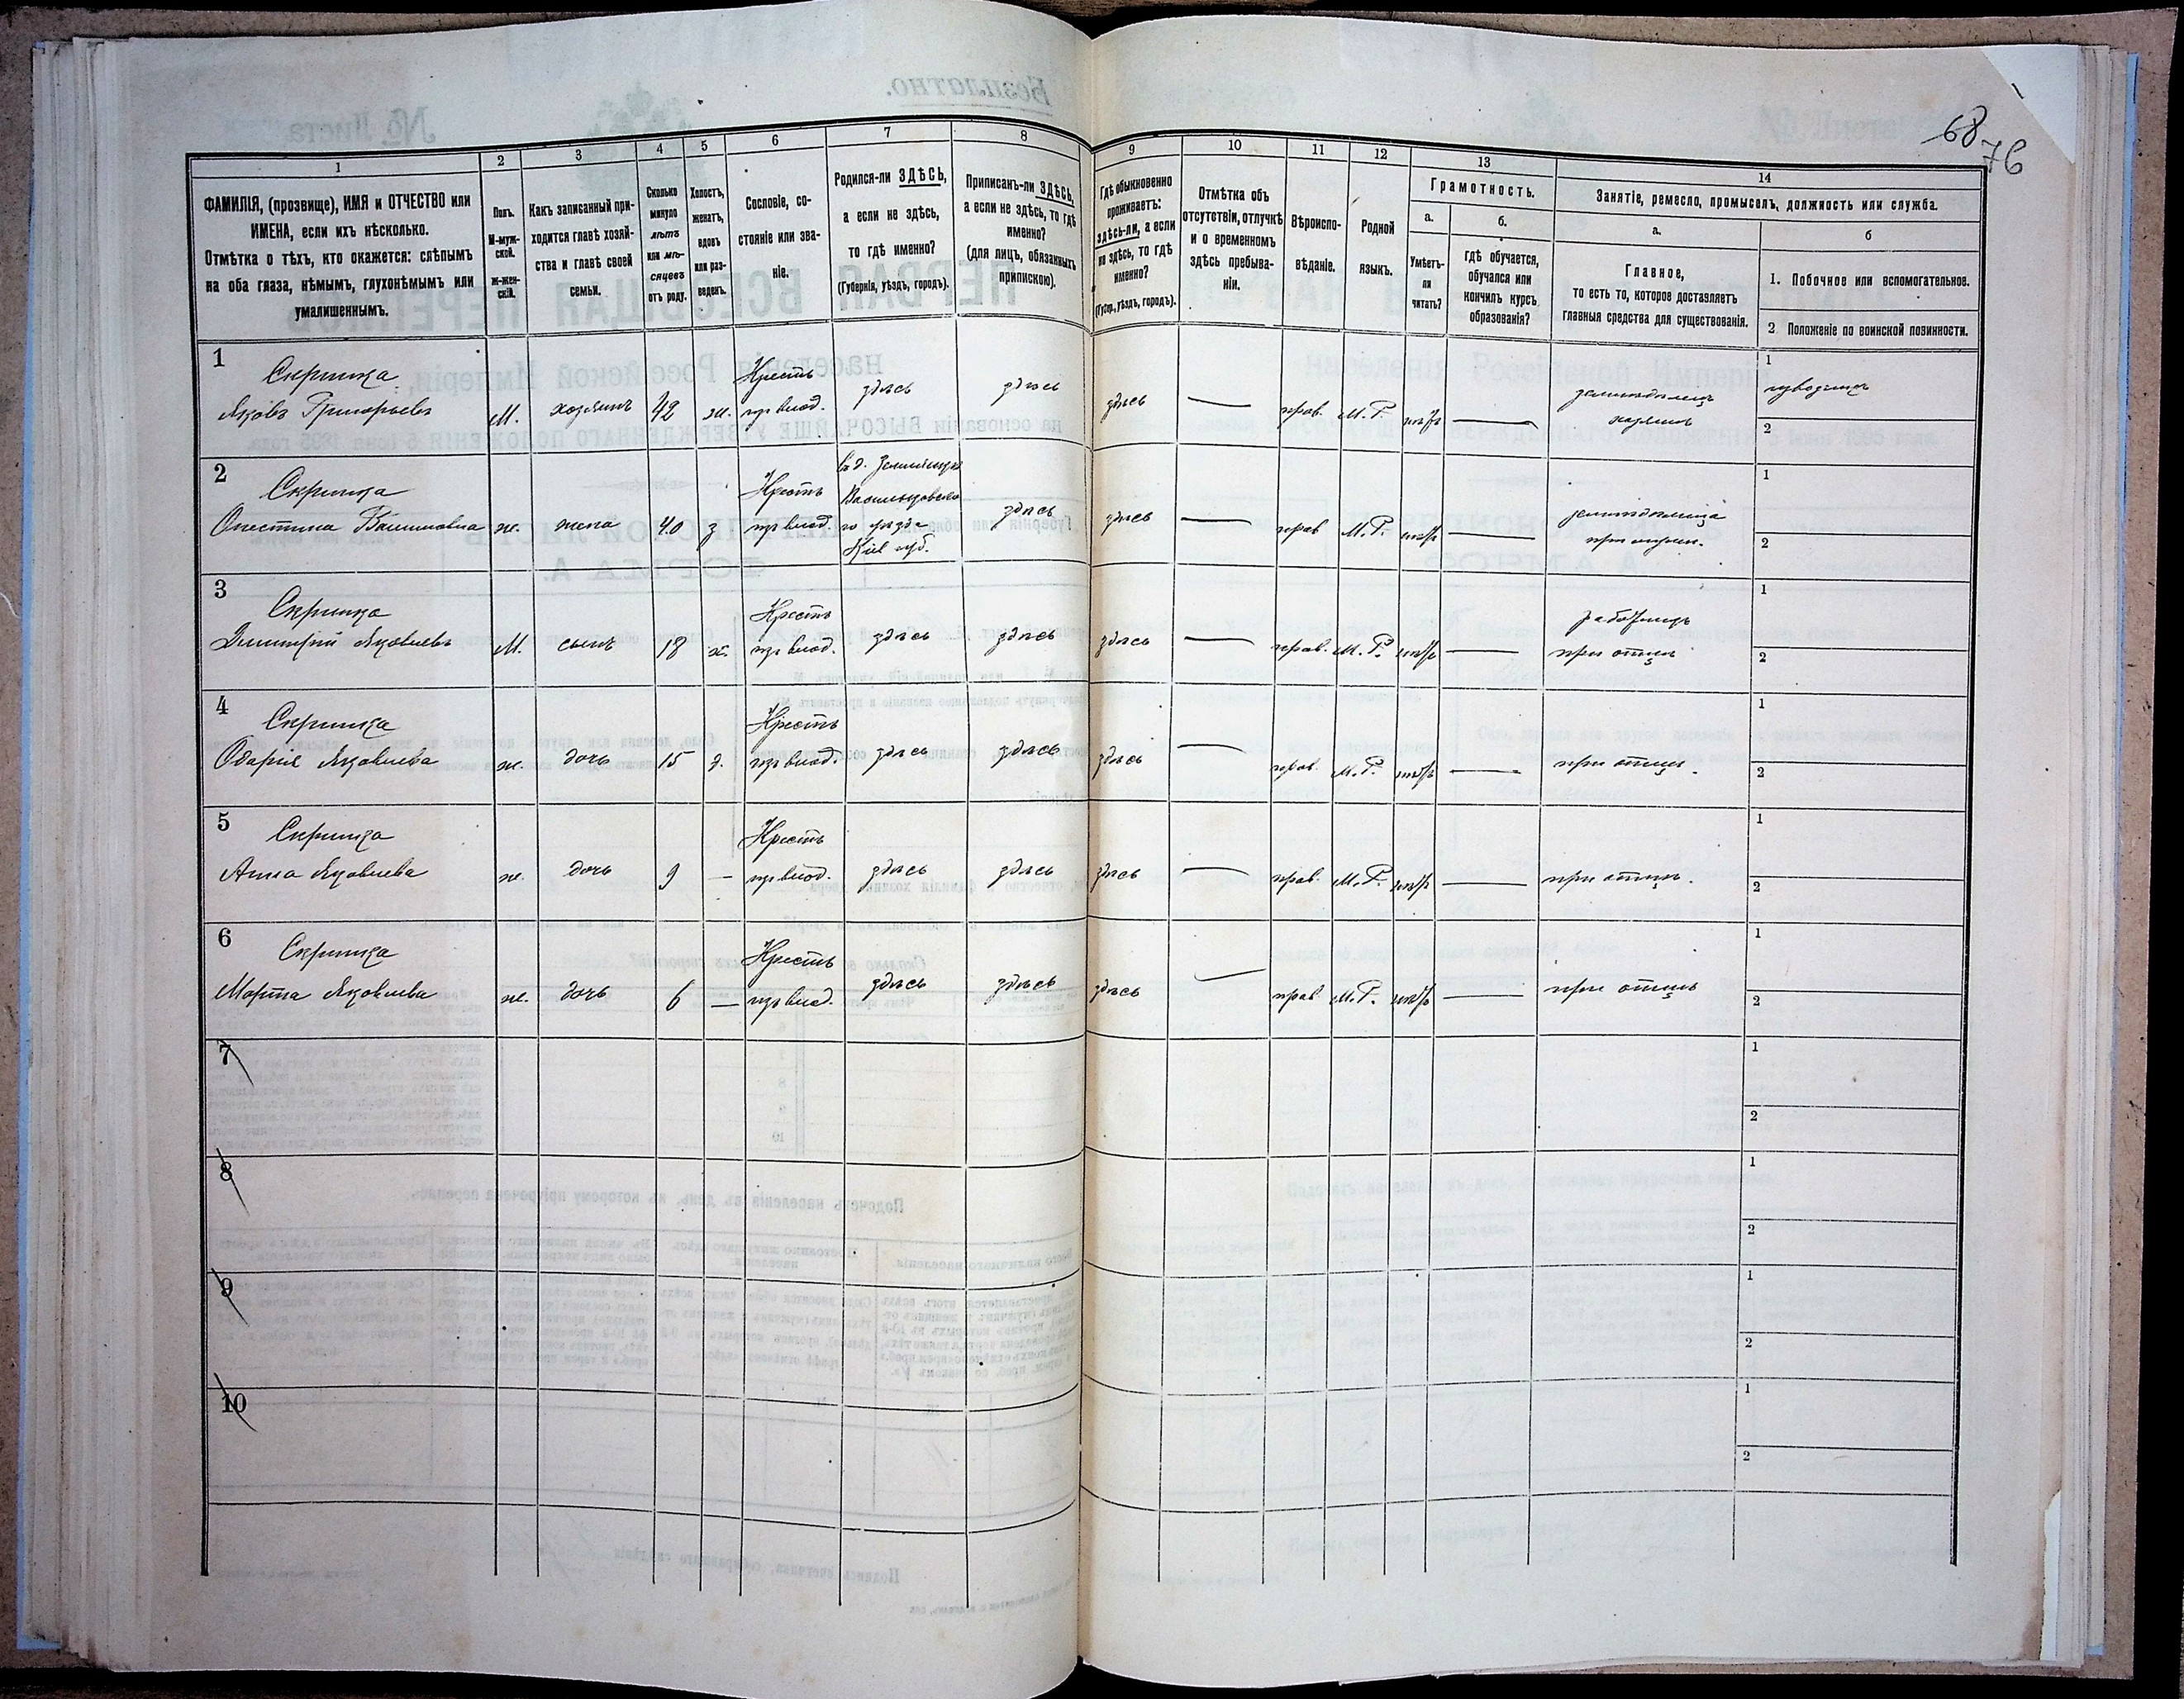 68
76
1
2
3
4
5
6
7
8
9
10
11
12
13
14
ФАМИЛІЯ, (прозвище), ИМЯ и ОТЧЕСТВО или
ИМЕНА, если ихъ нѣсколько.
Отмѣтка о тѣхъ, кто окажется: слѣпымъ
на оба глаза, нѣмымъ, глухонѣмымъ или
умалишеннымъ.
Полъ.
М-муж-
ской.
ж-жен-
скій.
Какъ записанный при-
ходится главѣ хозяй-
ства и главѣ своей
семьи.
Сколько
минуло
лѣтъ
или мѣ-
сяцевъ
отъ роду.
Холостъ,
женатъ,
вдовъ
или раз-
веденъ.
Сословіе, со-
стояніе или зва-
ніе.
Родился-ли ЗДѢСЬ,
а если не здѣсь,
то гдѣ именно?
(Губернія, уѣздъ, городъ).
Приписанъ-ли ЗДѢСЬ,
а если не здѣсь, то гдѣ
именно?
(для лицъ, обязанныхъ
припискою).
Гдѣ обыкновенно
проживаетъ:
здѣсь-ли, а если
не здѣсь, то гдѣ
именно?
(Губер., уѣздъ, городъ).
Отмѣтка объ
отсутствіи, отлучкѣ
и о временномъ
здѣсь пребыва-
ніи.
Вѣроиспо-
вѣданіе.
Родной
языкъ.
Грамотность.
а.
Умѣетъ-
ли
читать?
б.
гдѣ обучается,
обучался или
кончилъ курсъ
образованія?
Занятіе, ремесло, промыселъ, должность или служба.
а.
Главное,
то есть то, которое доставляетъ
главныя средства для существованія.
б
1. Побочное или вспомогательное.
2 Положеніе по воинской повинности.
1
Скрипка
Яковъ Григорьевъ
М.
хозяинъ
42
ж.
Крестъ
из влад.
здѣсь
здѣсь
здѣсь
прав.
М. Р.
нѣтъ
земледѣлецъ
хозяинъ
1
2
2
Скрипка
ж.
жена
40
з
Крестъ
из влад.
Васильковска
го уѣзда
Кіев губ.
здѣсь
здѣсь
прав
М. Р.
нѣтъ
1
2
3
Скрипка
Димитрій Яковлевъ
М.
сынъ
18
х.
Крестъ
из влад.
здѣсь
здѣсь
здѣсь
прав.
М. Р.
нѣтъ
работникъ
при отцѣ
1
2
4
Скрипка
Одарія Яковлева
ж.
дочь
15
д.
Крестъ
из влад.
здѣсь
здѣсь
здѣсь
прав.
М. Р.
нѣтъ
при отцѣ.
1
2
5
Скрипка
Анна Яковлева
ж.
дочь
9
Крестъ
из влад.
здѣсь
здѣсь
здѣсь
прав.
М. Р.
нѣтъ
при отцѣ.
1
2
6
Скрипка
Марта Яковлева
ж.
дочь
6
Крестъ
из влад.
здѣсь
здѣсь
здѣсь
прав
М. Р.
нѣтъ
при отцѣ
1
2
7
1
2
8
1
2
9
1
2
10
1
2